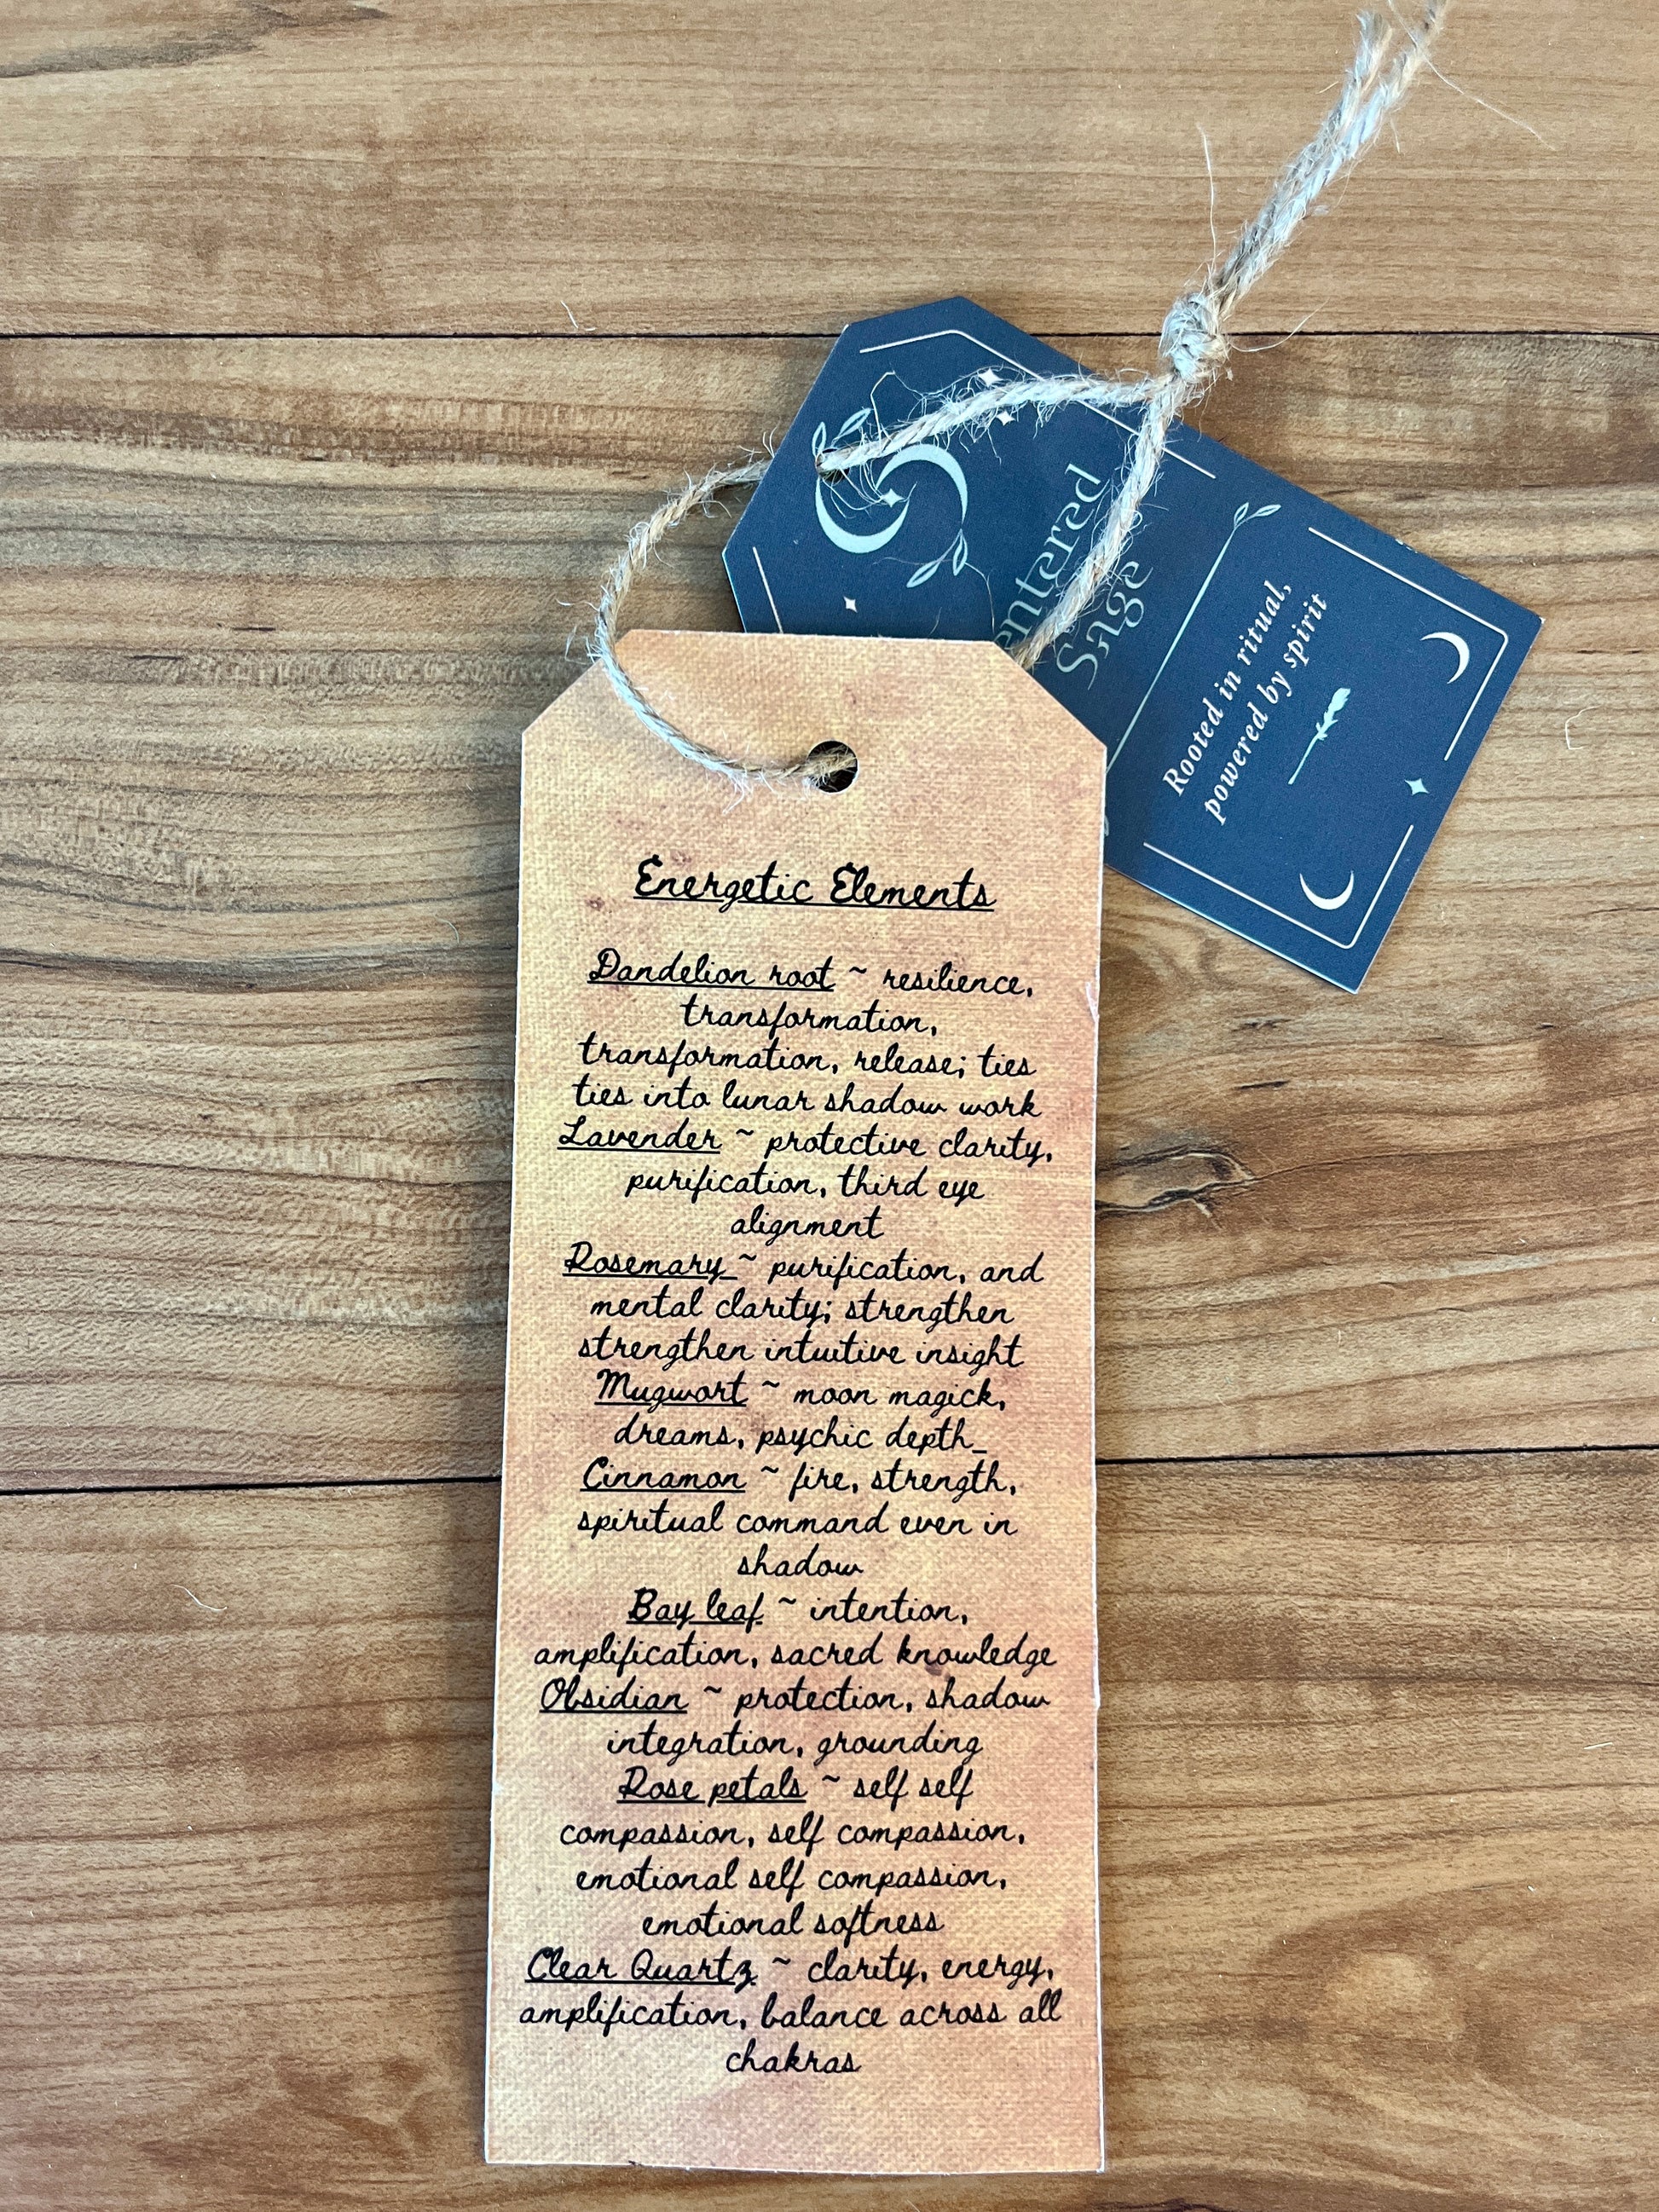 Sage
Rooted in ritual,
powered by spirit
Energetic Elements
Dandelion root ~ resilience,
transformation,
transformation, release; ties
ties into lunar shadow work
Lavender ~ protective clarity,
purification, third eye
alignment
Rosemary ~ purification, and
mental clarity; strengthen
strengthen intuitive insight
Mugwort ~ moon magick,
dreams, psychic depth_
Cinnamon ~ fire, strength,
spiritual command even in
shadow
Bay leaf ~ intention,
amplification, sacred knowledge
Obsidian ~ protection, shadow
integration, grounding
Rose petals ~ self self
compassion, self compassion,
emotional self compassion,
emotional softness
Clear Quartz ~ clarity, energy,
amplification, balance across all
chakras